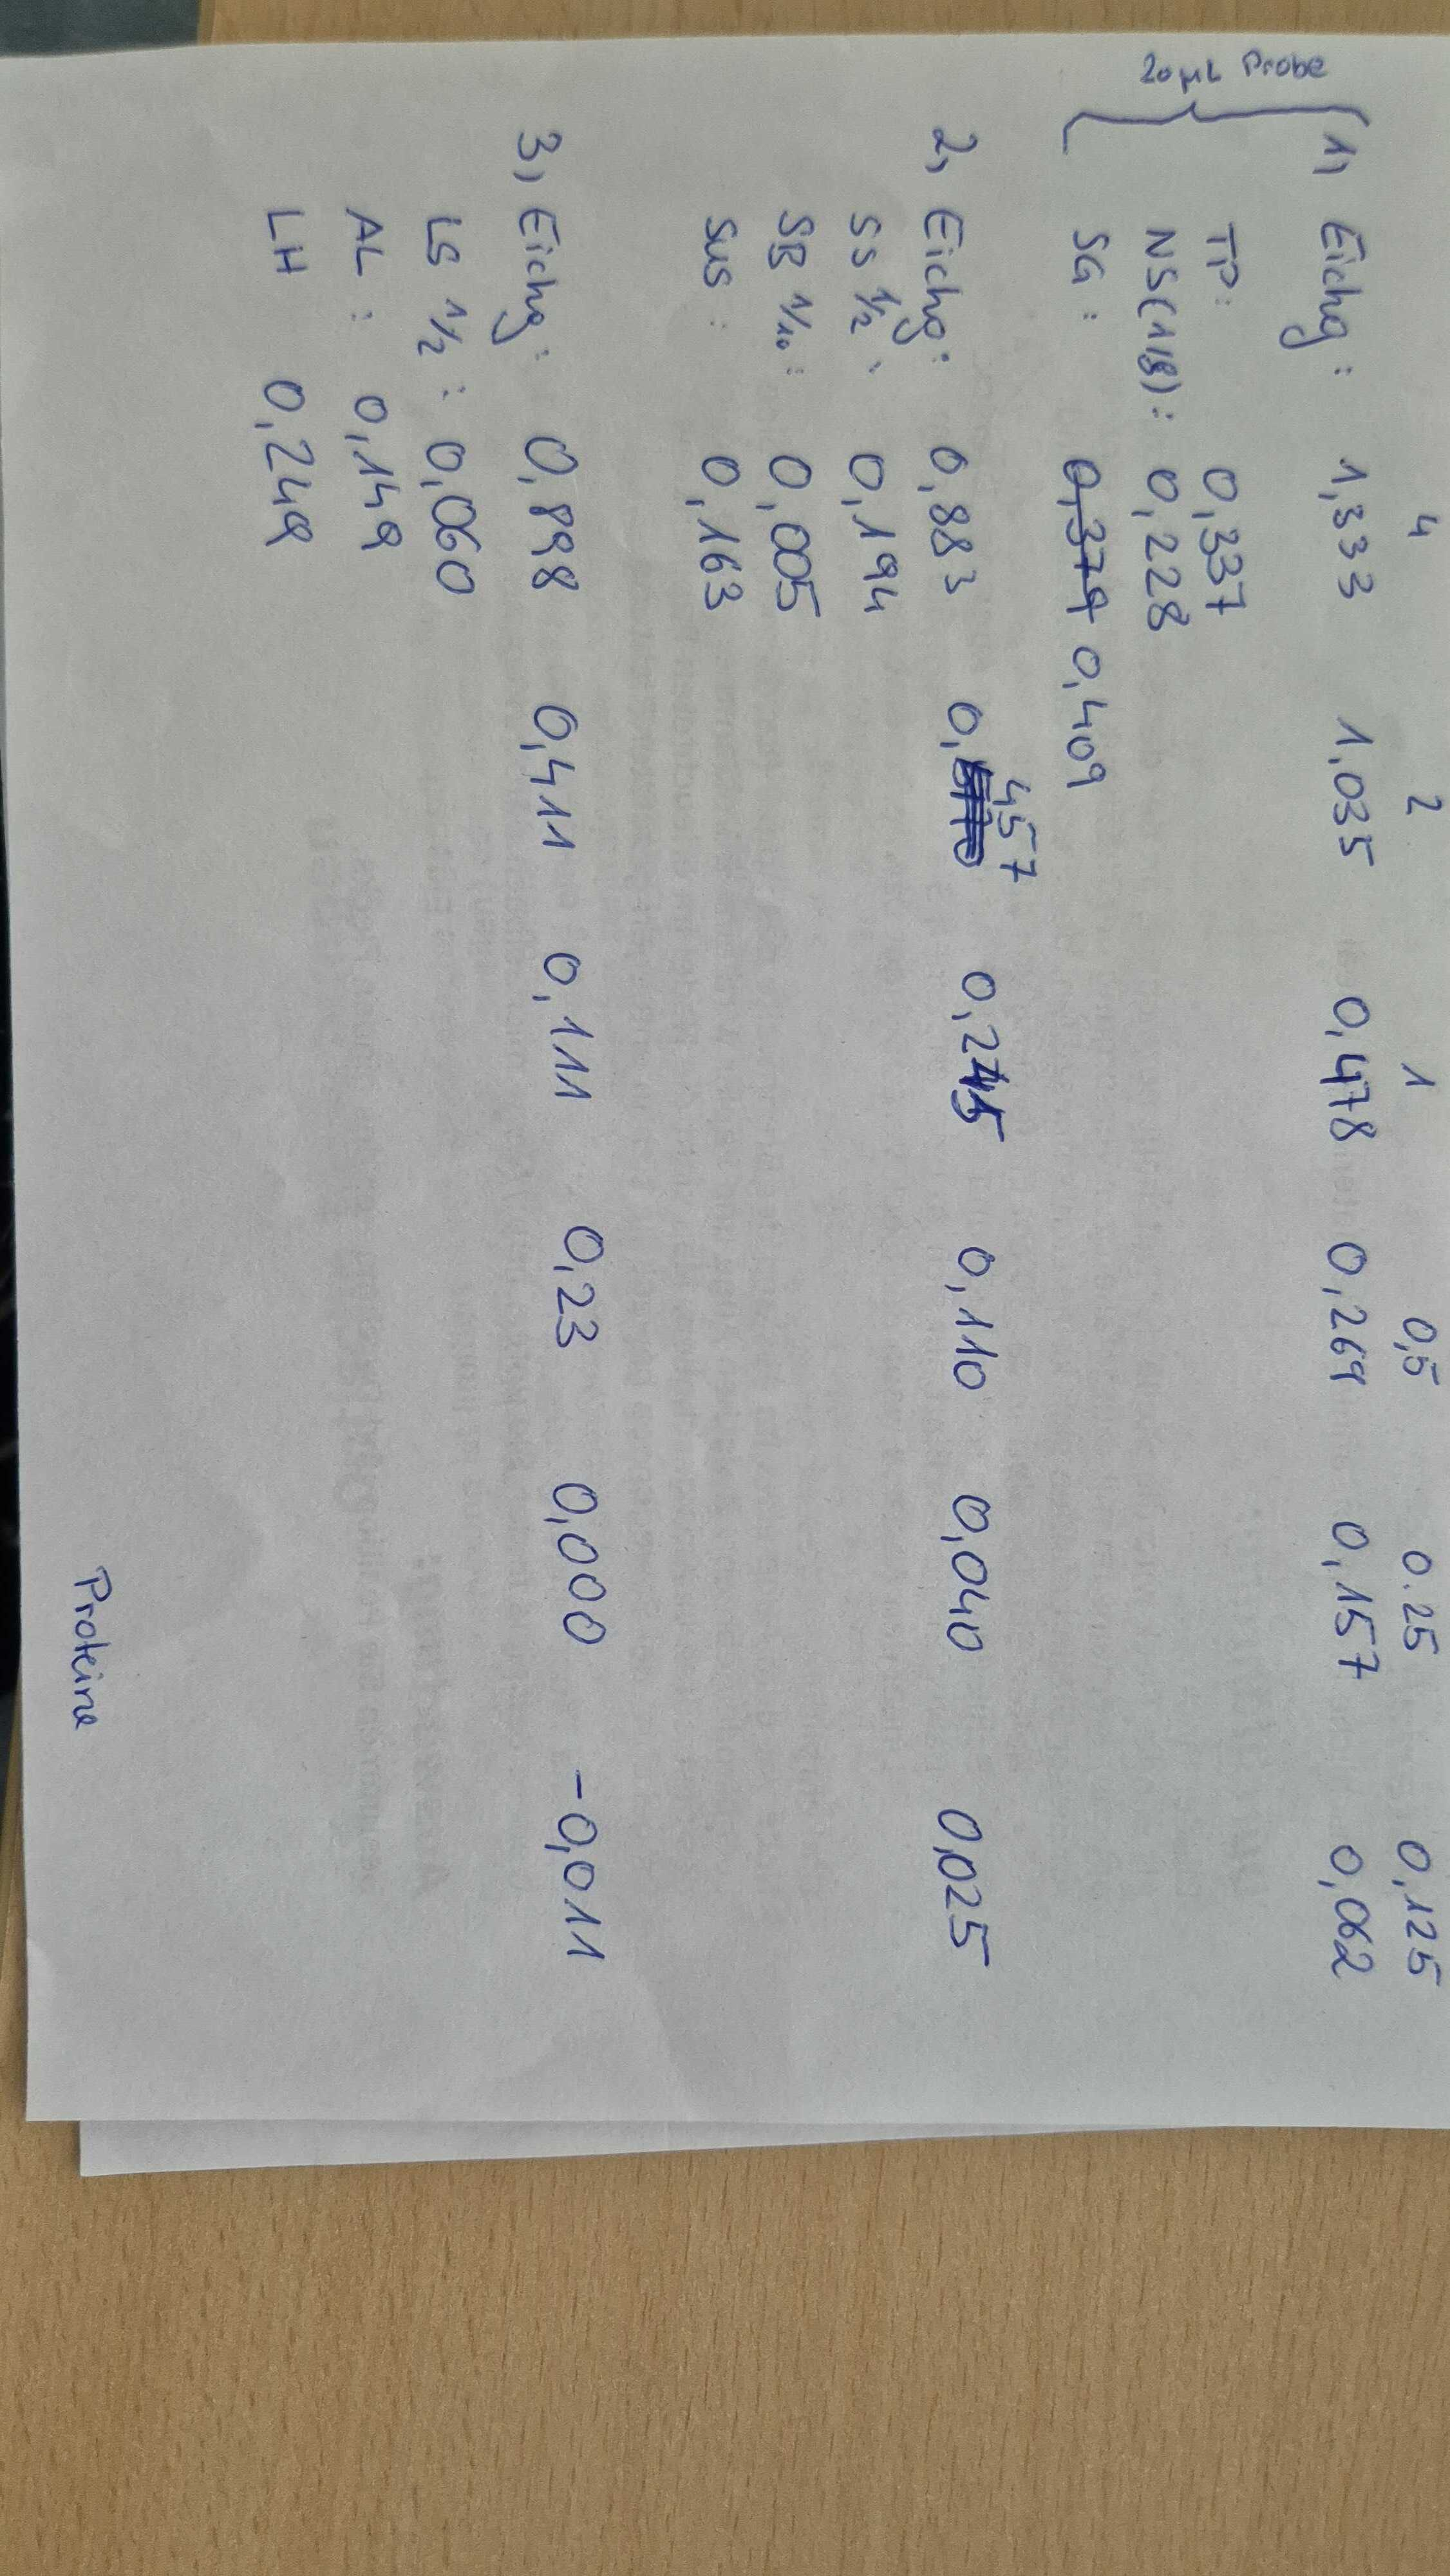 4 2 1 0,5 0.25 0,125
1, Eichg: 1,333 1,035 0,478 0,269 0,157 0,062
20 µL Probe
TP: 0,337
NS(1/8): 0,228
SG: 0,379 0,409
2, Eichg: 0,883 0,457 0,245 0,110 0,040 0,025
SS 1/2: 0,194
SB 1/10: 0,005
SuS: 0,163
3, Eichg: 0,898 0,411 0,111 0,23 0,000 -0,011
LS 1/2: 0,060
AL: 0,149
LH 0,249
Proteine